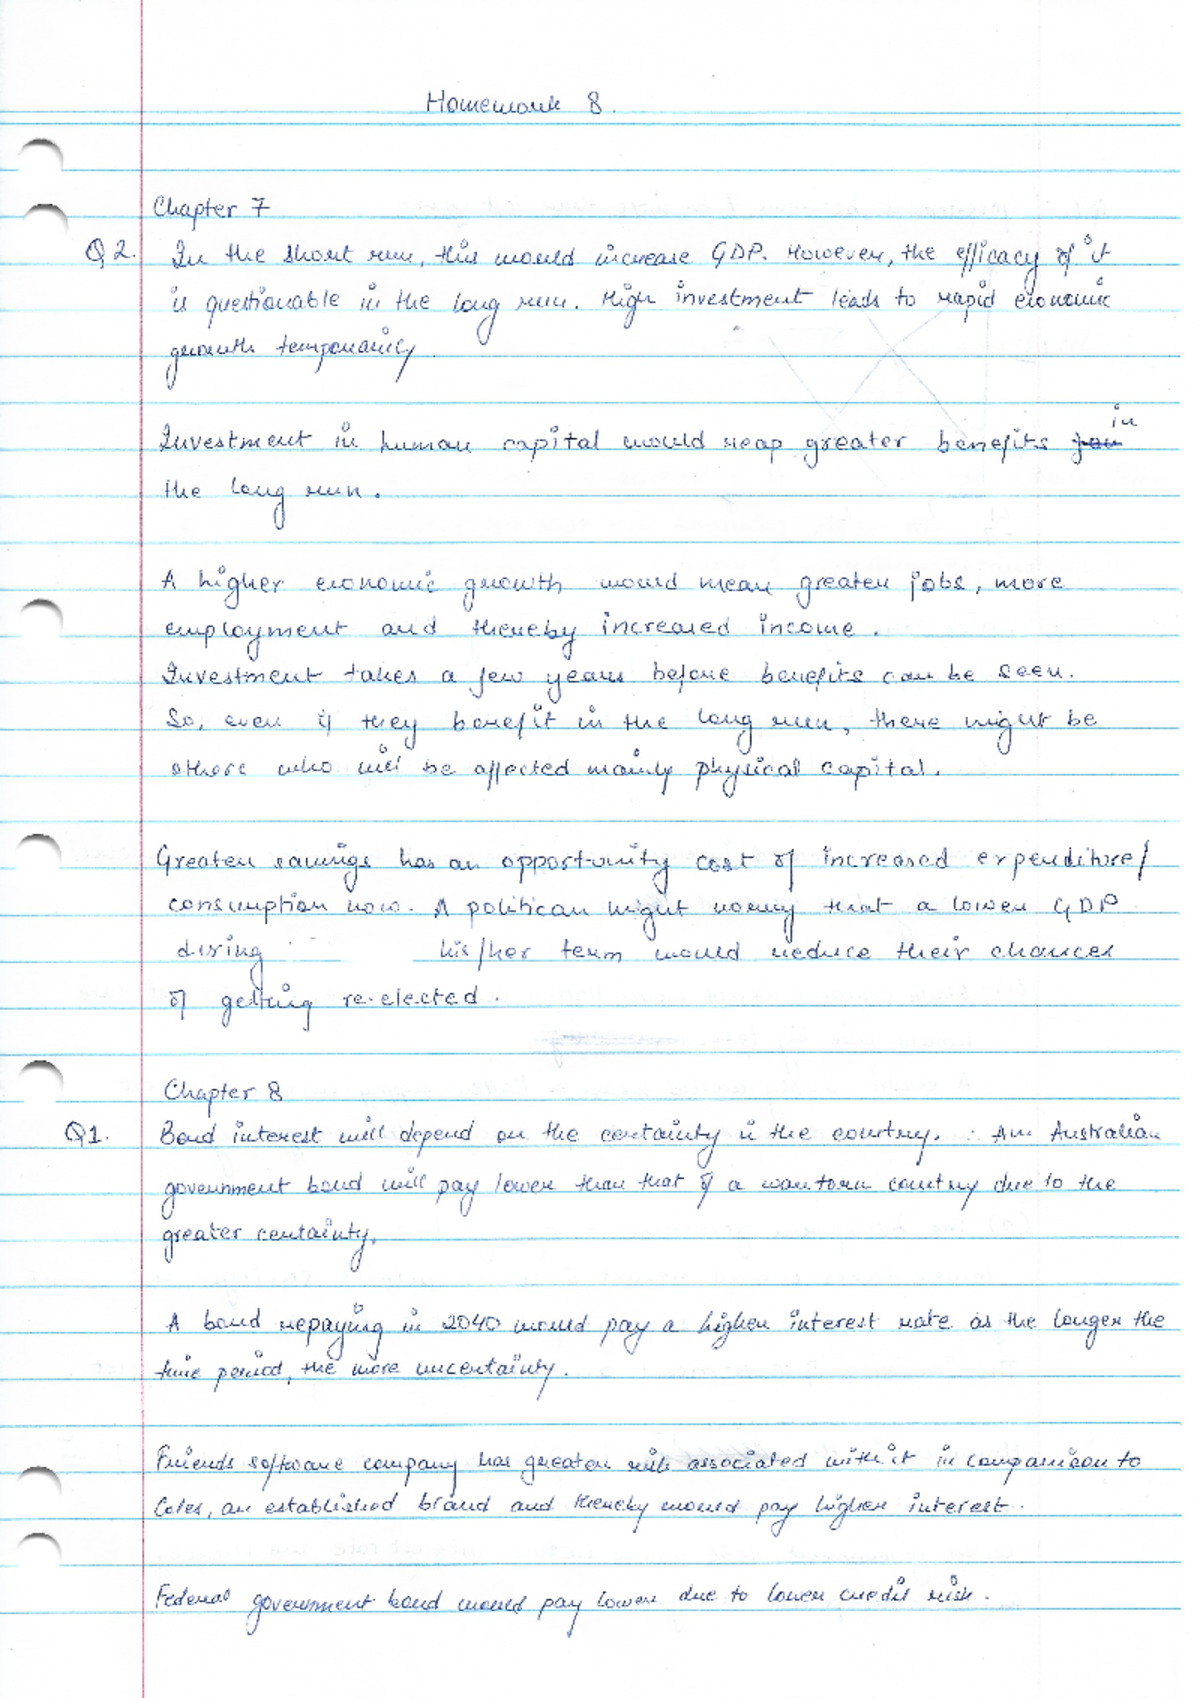 Homework 8.
Chapter 7
Q2. In the short run, this would increase GDP. However, the efficacy of it
is questionable in the long run. High investment leads to rapid economic
growth temporarily
Investment in human capital would reap greater benefits for in
the long run.
A higher economic growth would mean greater jobs, more
employment and thereby increased income.
Investment takes a few years before benefits can be seen.
So, even if they benefit in the long run, there might be
others who will be affected mainly physical capital.
Greater savings has an opportunity cost of increased expenditure/
consumption now. A politican might worry that a lower GDP
during his/her term would reduce their chances
of getting re-elected.
Chapter 8
Q1. Bond interest will depend on the certainty in the country. An Australian
government bond will pay lower than that of a wartorn country due to the
greater certainty.
A bond repaying in 2040 would pay a higher interest rate as the longer the
time period, the more uncertainty.
Friends software company has greater risk associated with it in comparison to
Coles, an established brand and thereby would pay higher interest.
Federal government bond would pay lower due to lower credit risk.